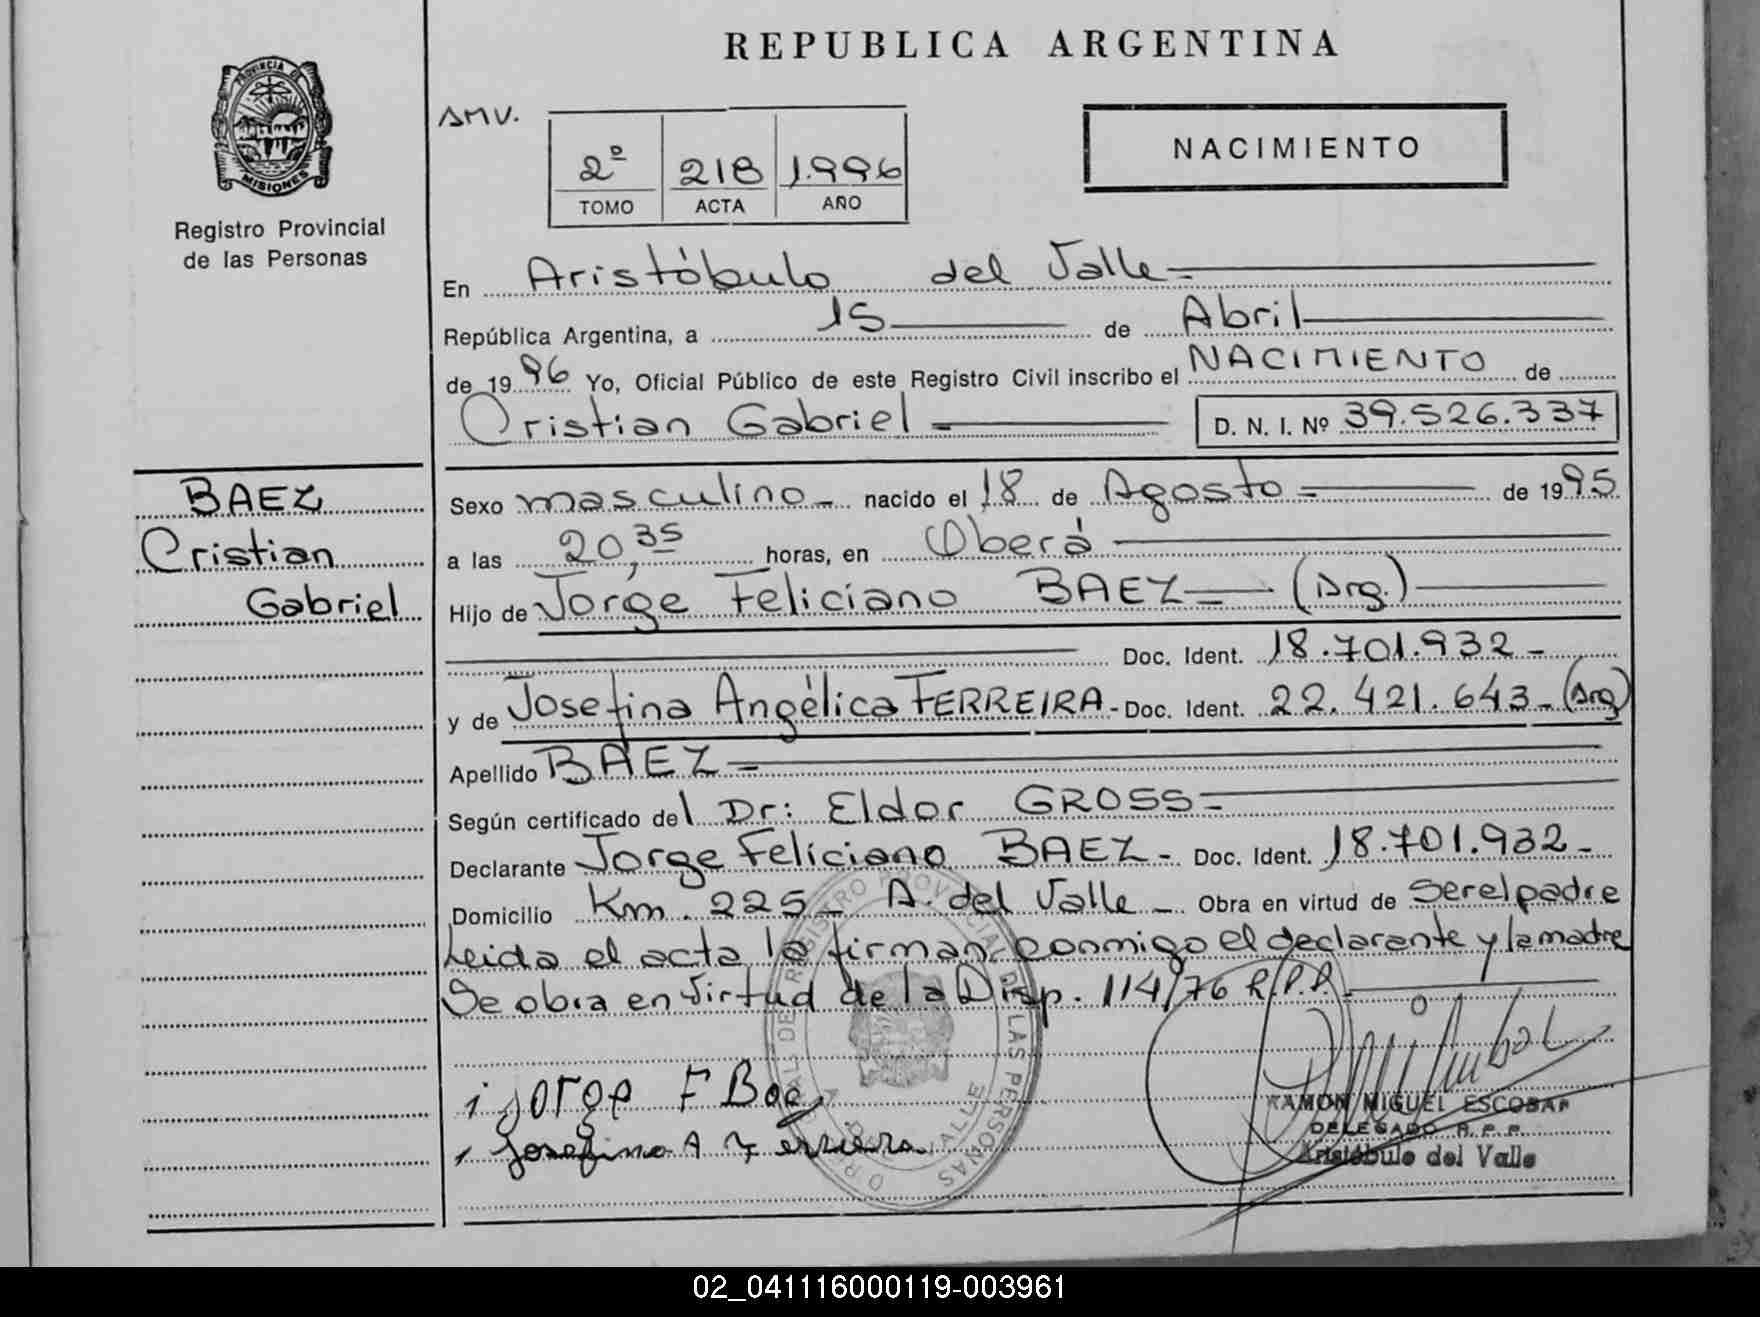 REPUBLICA ARGENTINA
PROVINCIA DE
MISIONES
Registro Provincial
de las Personas
AMV.
2º 218 1.996
TOMO ACTA AÑO
NACIMIENTO
En Aristóbulo del Valle
República Argentina, a 15 de Abril
de 1996 Yo, Oficial Público de este Registro Civil inscribo el NACIMIENTO de
Cristian Gabriel D. N. I. Nº 39.526.337
BAEZ
Cristian
Gabriel
Sexo masculino nacido el 18 de Agosto de 1995
a las 20,35 horas, en Oberá
Hijo de Jorge Feliciano BAEZ (Arg.)
Doc. Ident. 18.701.932
y de Josefina Angélica FERREIRA - Doc. Ident. 22.421.643 (Arg)
Apellido BAEZ
Según certificado del Dr: Eldor GROSS
Declarante Jorge Feliciano BAEZ Doc. Ident. 18.701.932
Domicilio Km. 225 A. del Valle Obra en virtud de ser el padre
Leida el acta la firman conmigo el declarante y la madre
Se obra en virtud de la Disp. 114/76 R.P.P.
Jorge F Baez
Josefina A Ferreira
REGISTRO PROVINCIAL DE LAS PERSONAS
RAMON MIGUEL ESCOBAR
DELEGADO R.P.P.
Aristóbulo del Valle
02_041116000119-003961